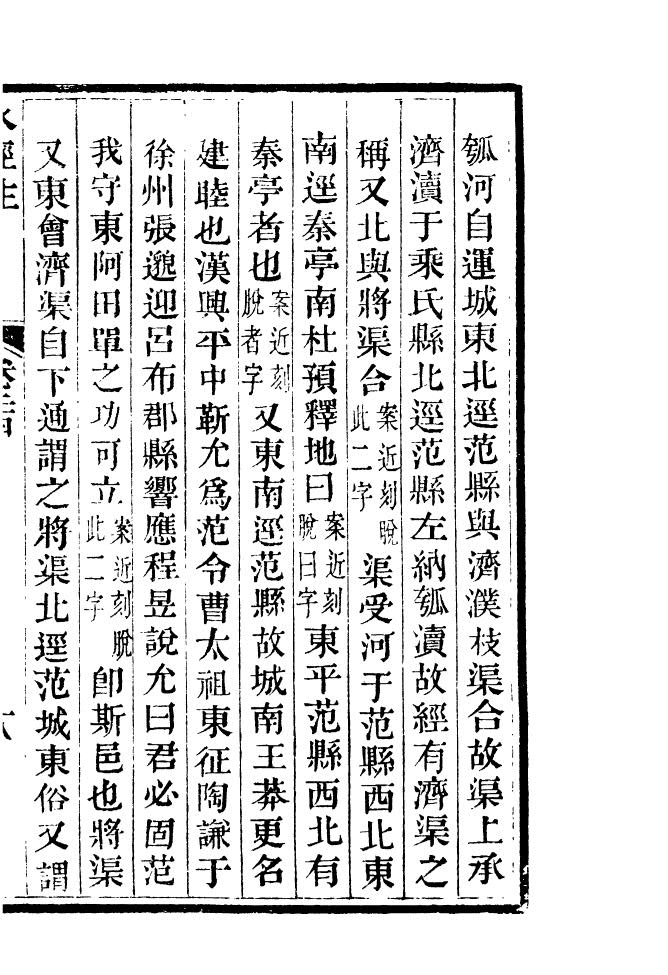 瓠河自運城東北逕范縣與濟濮枝渠合故渠上承
濟瀆于乘氏縣北逕范縣左納瓠瀆故經有濟渠之
稱又北與將渠合案近刻脫此二字渠受河于范縣西北東
南逕秦亭南杜預釋地曰案近刻脫曰字東平范縣西北有
秦亭者也案近刻脫者字又東南逕范縣故城南王莽更名
建睦也漢興平中靳允爲范令曹太祖東征陶謙于
徐州張邈迎呂布郡縣響應程昱說允曰君必固范
我守東阿田單之功可立案近刻脫此二字卽斯邑也將渠
又東會濟渠自下通謂之將渠北逕范城東俗又謂
水經注 卷二十四 六